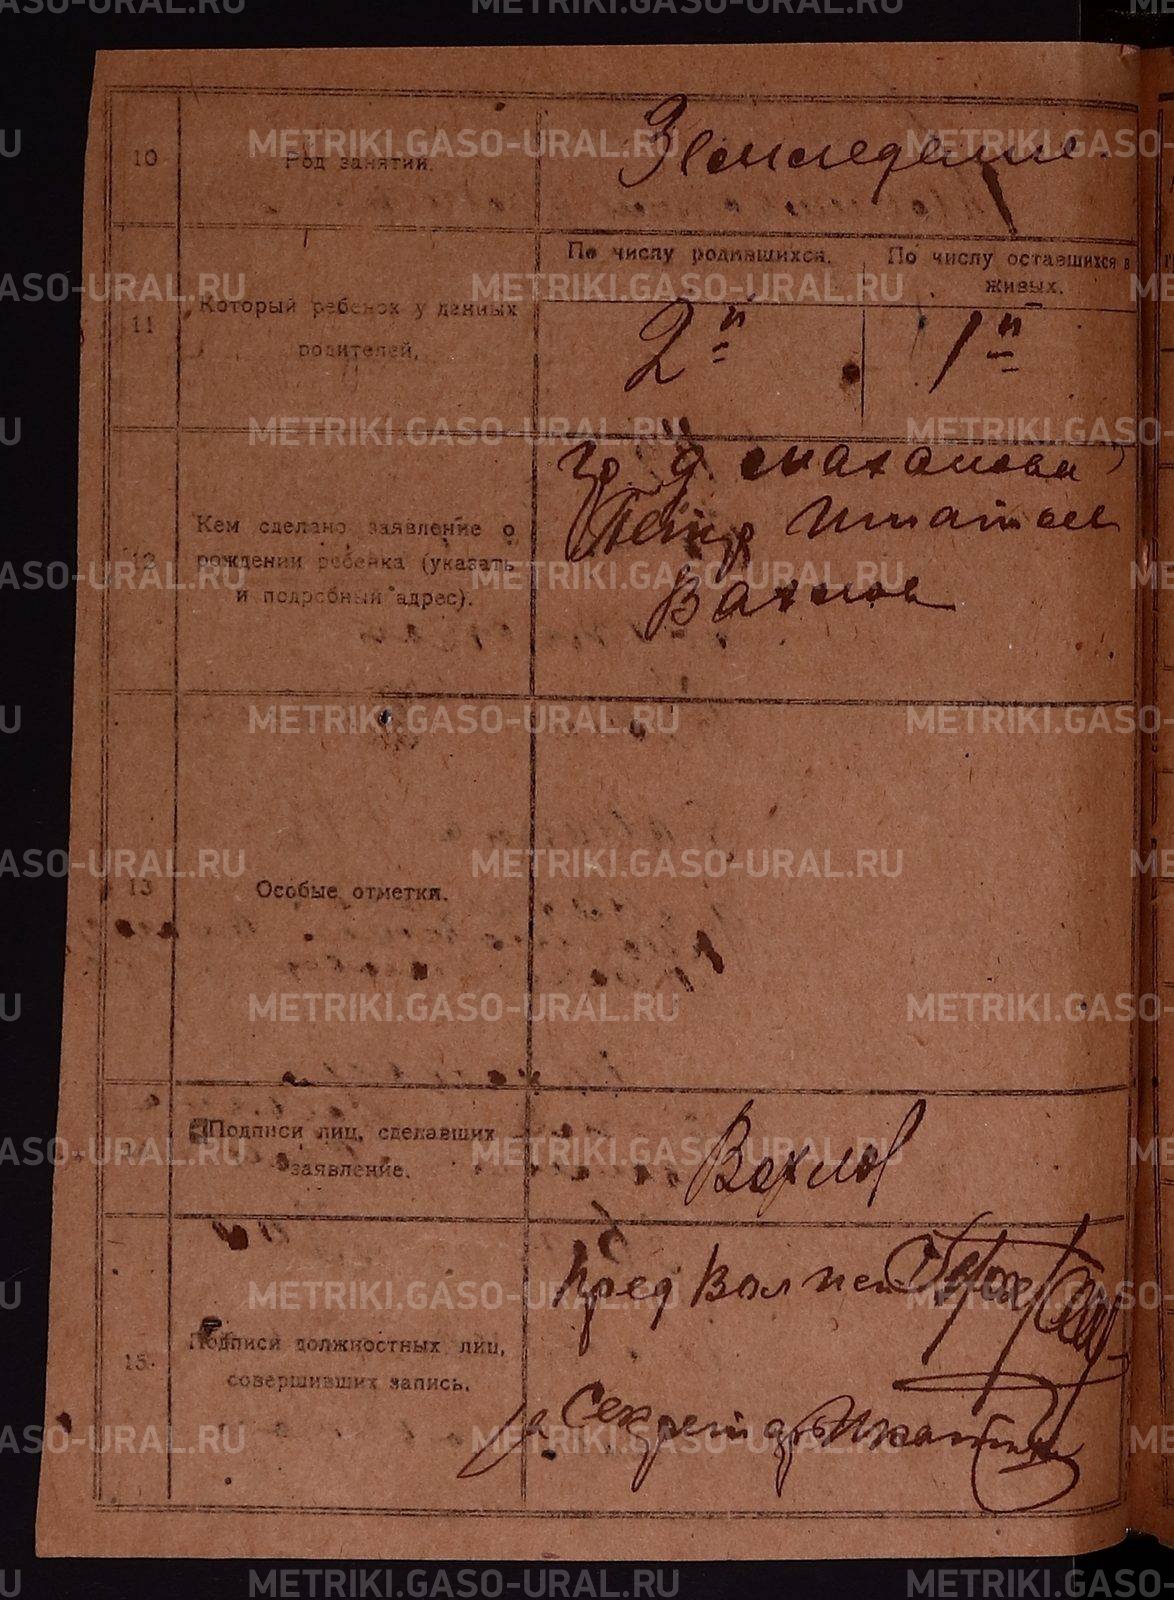 10
Род занятий.
Земледелие.
11
Который ребенок у данных
родителей.
По числу родившихся.
2й
По числу оставшихся в
живых.
1й
12
Кем сделано заявление о
рождении ребенка (указать
и подробный адрес).
гр д.
Петр
Вахлов
13
Особые отметки.
Подписи лиц, сделавших
заявление.
Вахлов
15.
Подписи должностных лиц,
совершивших запись.
Пред Вол
Секретарь
METRIKI.GASO-URAL.RU